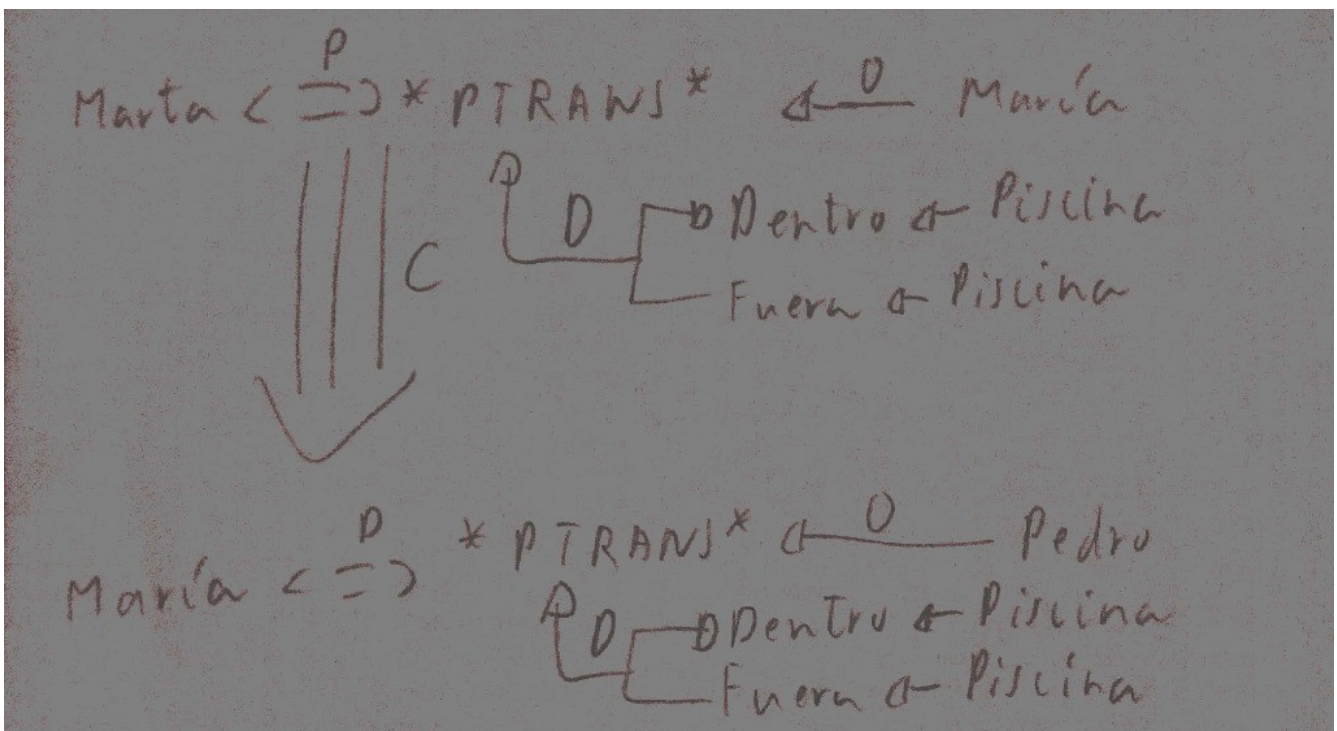 P
Marta <=> *PTRANS* O María
D Dentro Piscina
C
Fuera Piscina
P
María <=> *PTRANS* O Pedro
D Dentro Piscina
Fuera Piscina